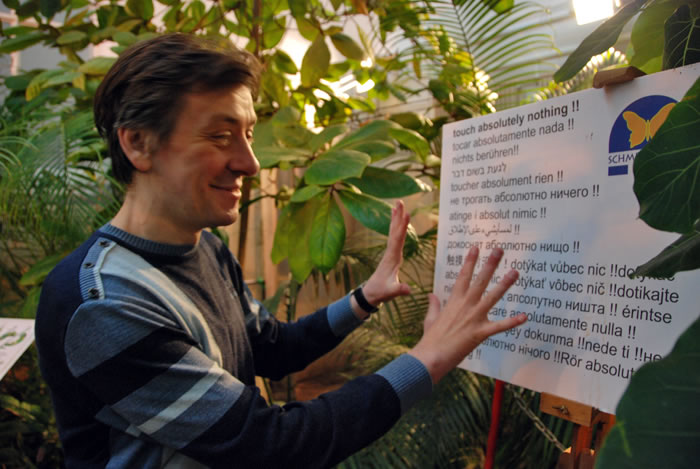 touch absolutely nothing !!
tocar absolutamente nada !!
nichts berühren!!
לגעת בשום דבר
toucher absolument rien !!
не трогать абсолютно ничего !!
atinge i absolut nimic !!
докоснат абсолютно нищо !!
触摸 ! dotýkat vůbec nic !!
absol dotýkat vůbec nič !!dotikajte
апсолутно ништа !! érintse
care absolutamente nulla !!
şey dokunma !!nede ti !!не
ALютно нічого !!Rör absolut
!!
SCHM